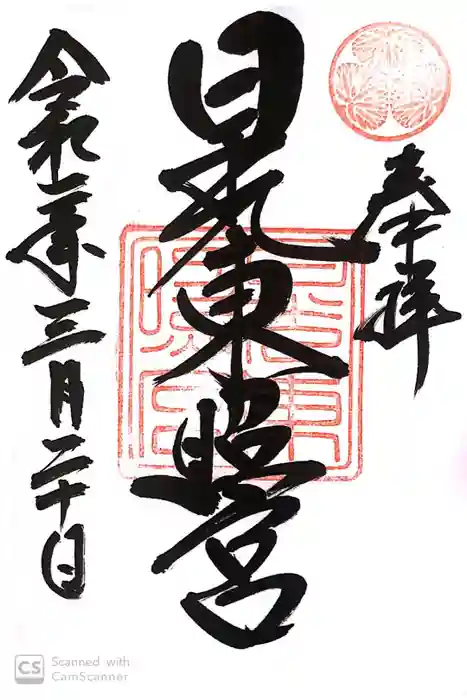 奉拝
日光東照宮
令和二年三月二十日
CS Scanned with
CamScanner